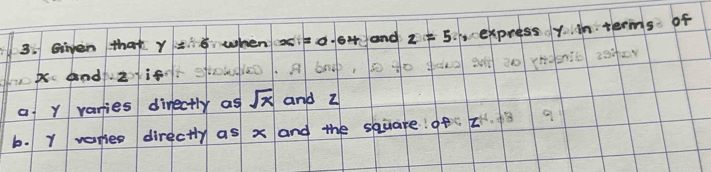 3. Given that y = 6 when x = 0.64 and z = 5, express y in terms of
x and z if
a. y varies directly as √x and z
b. y varies directly as x and the square of z